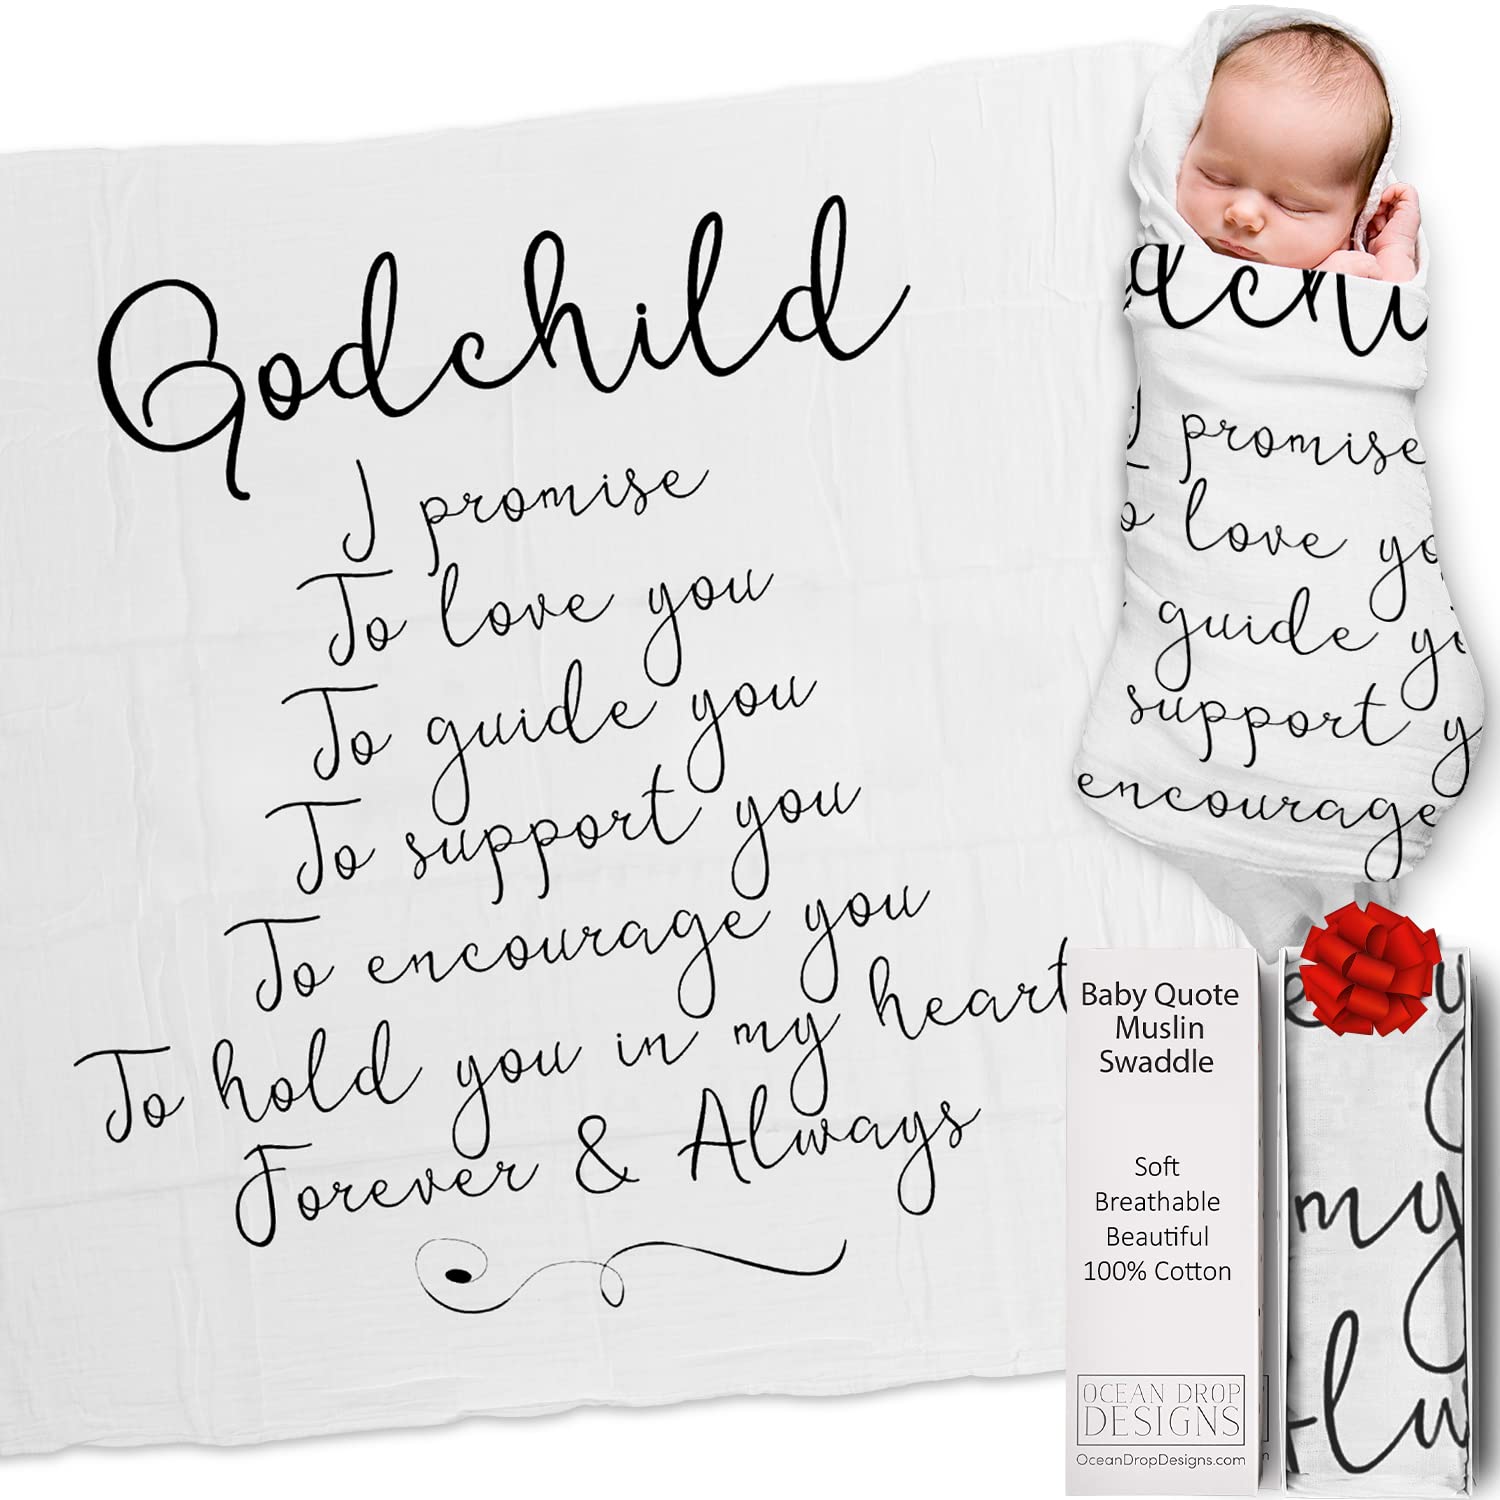 Godchild
I promise
To love you
To guide you
To support you
To encourage you
To hold you in my heart
Forever & Always
dchi
I promise
o love yo
guide yo
support y
encourage
Baby Quote
Muslin
Swaddle
Soft
Breathable
Beautiful
100% Cotton
OCEAN DROP
DESIGNS
OceanDropDesigns.com
my
lw